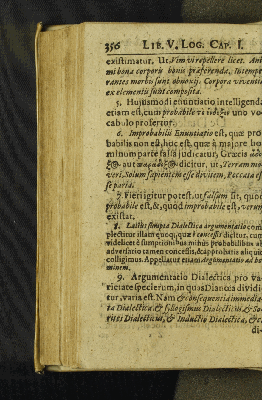 356 LIB. V. LOG. CAP. I.
existimatur. Ut, Vim vi repellere licet. Ani-
mi bona corporis bonis præferenda. Intempe-
rantes morbis sunt obnoxii. Corpora viventia
ex elementis sunt composita.
5. Hujusmodi enuntiatio intelligenda
etiam est, cum probabile uno vo-
cabulo profertur.
6. Improbabilis Enuntiatio est, quæ pro-
babilis non est, hoc est, quæ à majore ho-
minum parte falsa judicatur, Græcis
aut dicitur, ut, Terram mo-
veri. Solum sapientem esse divitem, Peccata es-
se paria.
7. Fieri igitur potest, ut falsum sit, quod
probabile est, & quod improbabile est, verum
existat.
8. Latius sumpta Dialectica argumentatio com-
plectitur illam quoq;, quæ è concessis dicitur, cum
videlicet è sumptionibus minus probabilibus ab
adversario tamen concessis, & approbatis aliquid
colligimus. Appellatur etiam argumentatio ad ho-
minem.
9. Argumentatio Dialectica pro va-
rietate specierum, in quas Dianœa dividi-
tur, varia est. Nam & consequentia immedia-
ta Dialectica, & syllogismus Dialecticus & So-
rites Dialecticus, & Inductio Dialectica, &
di-